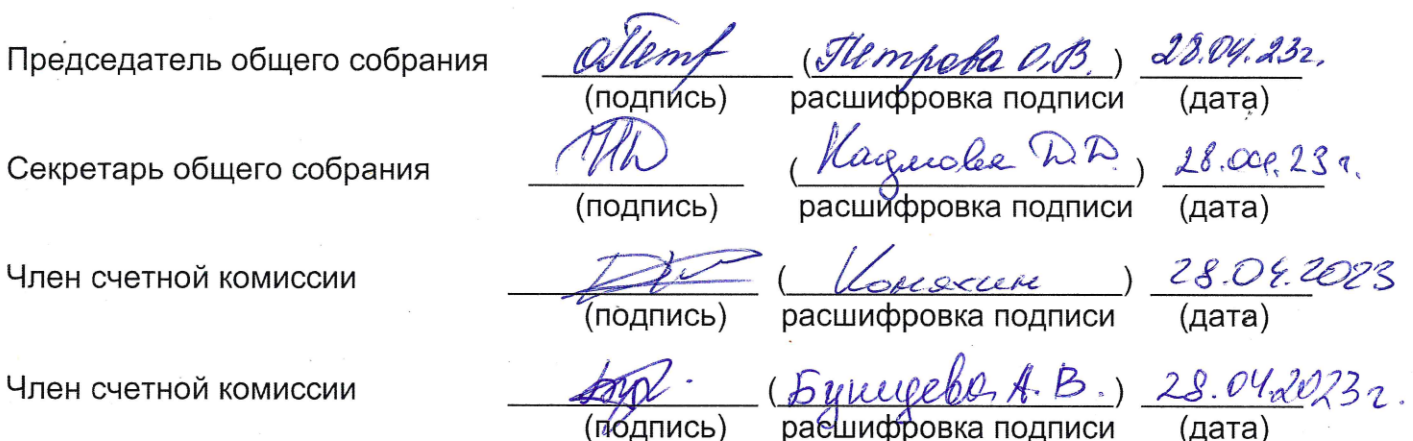 Председатель общего собрания оПетр (Петрова О.В.) 28.04.23г.
(подпись) расшифровка подписи (дата)
Секретарь общего собрания (Кадмова Д.Д.) 28.04.23 г.
(подпись) расшифровка подписи (дата)
Член счетной комиссии (Конякин) 28.04.2023
(подпись) расшифровка подписи (дата)
Член счетной комиссии (А.В.) 28.04.2023г.
(подпись) расшифровка подписи (дата)